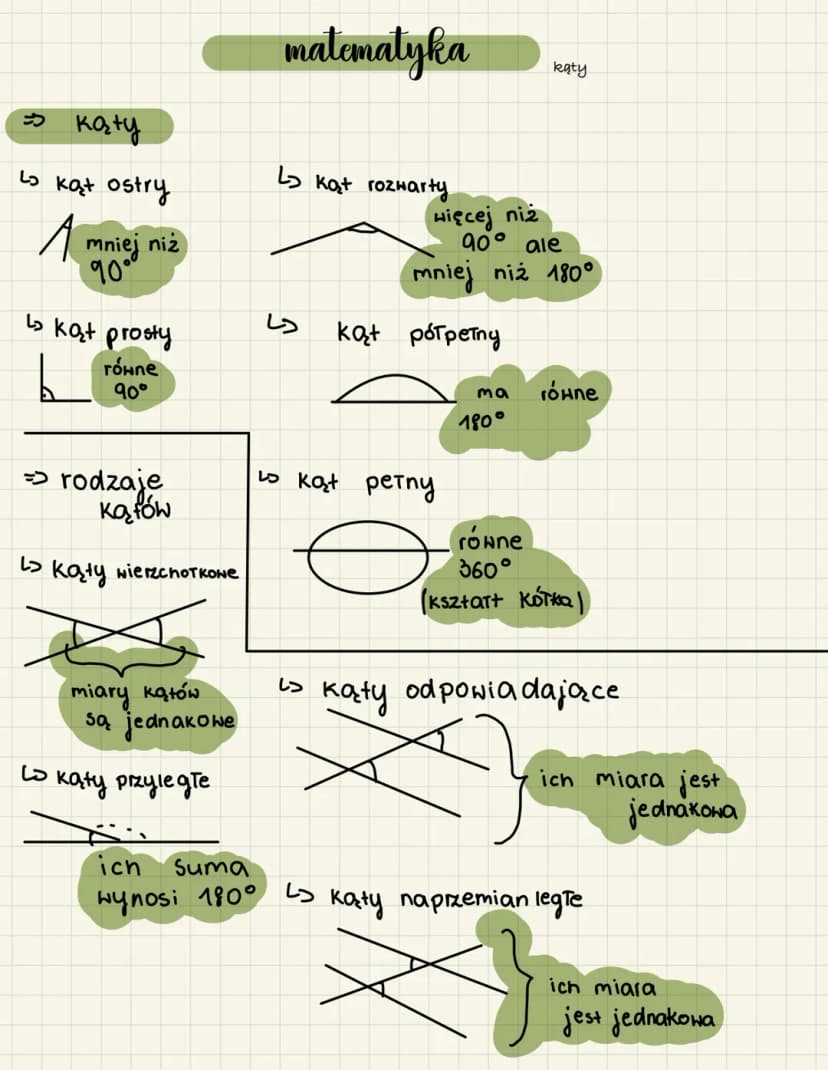 matematyka
kąty
⇒ kąty
↳ kąt ostry
mniej niż
90°
↳ kąt rozwarty
więcej niż
90° ale
mniej niż 180°
↳ kąt prosty
równe
90°
↳ kąt półpełny
ma równe
180°
↳ kąt pełny
równe
360°
(kształt kółka)
⇒ rodzaje
kątów
↳ kąty wierzchołkowe
miary kątów
są jednakowe
↳ kąty przyległe
ich suma
wynosi 180°
↳ kąty odpowiadające
ich miara jest
jednakowa
↳ kąty naprzemian ległe
ich miara
jest jednakowa